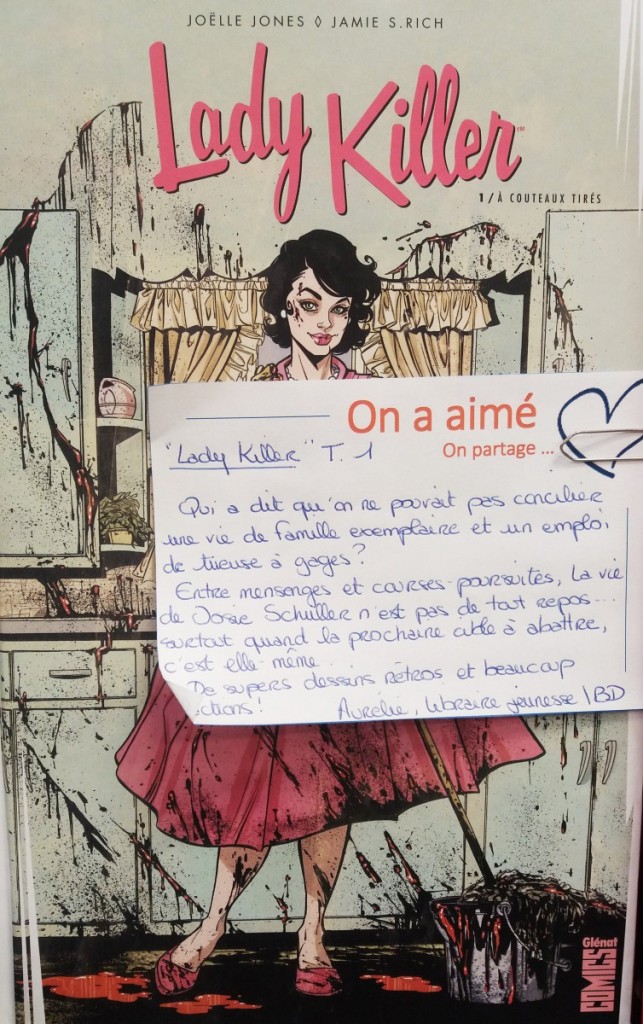 JOËLLE JONES ◊ JAMIE S.RICH
Lady Killer
1 / À COUTEAUX TIRÉS
On a aimé
On partage ...
"Lady Killer" T. 1
Qui a dit qu'on ne pouvait pas concilier
une vie de famille exemplaire et un emploi
de tueuse à gages?
Entre mensonges et courses-poursuites, la vie
de Josie Schuller n'est pas de tout repos...
surtout quand la prochaine cible à abattre,
c'est elle-même...
De supers dessins rétros et beaucoup
ctions!
Aurélie, libraire jeunesse / BD
Glénat
COMICS